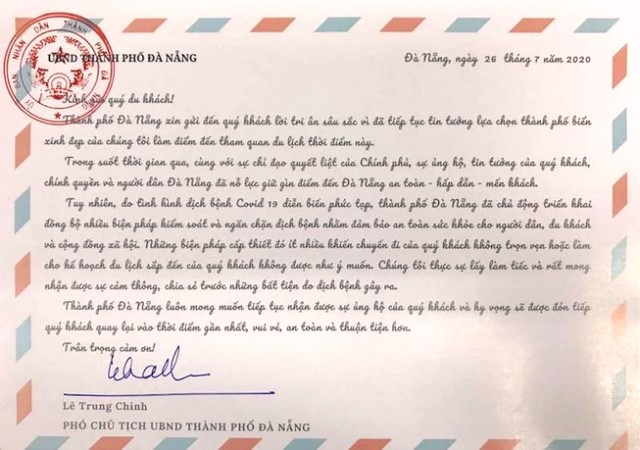 UBND THÀNH PHỐ ĐÀ NẴNG
Đà Nẵng, ngày 26 tháng 7 năm 2020
Kính gửi quý du khách!
Thành phố Đà Nẵng xin gửi đến quý khách lời tri ân sâu sắc vì đã tiếp tục tin tưởng lựa chọn thành phố biển
xinh đẹp của chúng tôi làm điểm đến tham quan du lịch thời điểm này.
Trong suốt thời gian qua, cùng với sự chỉ đạo quyết liệt của Chính phủ, sự ủng hộ, tin tưởng của quý khách,
chính quyền và người dân Đà Nẵng đã nỗ lực giữ gìn điểm đến Đà Nẵng an toàn - hấp dẫn - mến khách.
Tuy nhiên, do tình hình dịch bệnh Covid 19 diễn biến phức tạp, thành phố Đà Nẵng đã chủ động triển khai
đồng bộ nhiều biện pháp kiểm soát và ngăn chặn dịch bệnh nhằm đảm bảo an toàn sức khỏe cho người dân, du khách
và cộng đồng xã hội. Những biện pháp cấp thiết đó ít nhiều khiến chuyến đi của quý khách không trọn vẹn hoặc làm
cho kế hoạch du lịch sắp đến của quý khách không được như ý muốn. Chúng tôi thực sự lấy làm tiếc và rất mong
nhận được sự cảm thông, chia sẻ trước những bất tiện do dịch bệnh gây ra.
Thành phố Đà Nẵng luôn mong muốn tiếp tục nhận được sự ủng hộ của quý khách và hy vọng sẽ được đón tiếp
quý khách quay lại vào thời điểm gần nhất, vui vẻ, an toàn và thuận tiện hơn.
Trân trọng cảm ơn!
Lê Trung Chinh
PHÓ CHỦ TỊCH UBND THÀNH PHỐ ĐÀ NẴNG